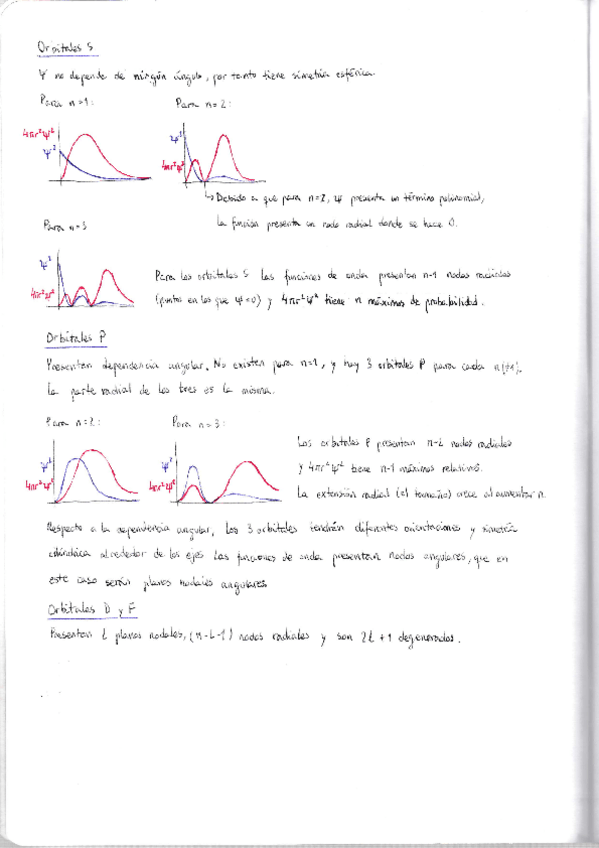 Orbitales S
Ψ no depende de ningún ángulo, por tanto tiene simetría esférica.
Para n=1: Para n=2:
4πr²Ψ² Ψ² Ψ² 4πr²Ψ²
↳ Debido a que para n=2, Ψ presenta un término polinomial,
la función presenta un nodo radial donde se hace 0.
Para n=3
Ψ² 4πr²Ψ²
Para los orbitales S las funciones de onda presentan n-1 nodos radiales
(puntos en los que Ψ=0) y 4πr²Ψ² tiene n máximos de probabilidad.
Orbitales P
Presentan dependencia angular. No existen para n=1, y hay 3 orbitales P para cada n(≠1).
La parte radial de los tres es la misma.
Para n=2: Para n=3:
Ψ² 4πr²Ψ² Ψ² 4πr²Ψ²
Los orbitales P presentan n-2 nodos radiales
y 4πr²Ψ² tiene n-1 máximos relativos.
La extensión radial (el tamaño) crece al aumentar n.
Respecto a la dependencia angular, los 3 orbitales tendrán diferentes orientaciones y simetría
cilíndrica alrededor de los ejes. Las funciones de onda presentan nodos angulares, que en
este caso serán planos nodales angulares.
Orbitales D y F
Presentan L planos nodales, (n-L-1) nodos radiales y son 2L+1 degenerados.